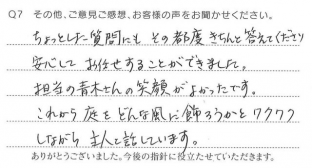 Q7 その他、ご意見ご感想、お客様の声をお聞かせください。
ちょっとした質問にも その都度 きちんと答えてくださり
安心して お任せすることができました。
担当の青木さんの笑顔がよかったです。
これから 庭を どんな風に飾ろうかと ワクワク
しながら 主人と話しています。
ありがとうございました。今後の指針に役立たせていただきます。